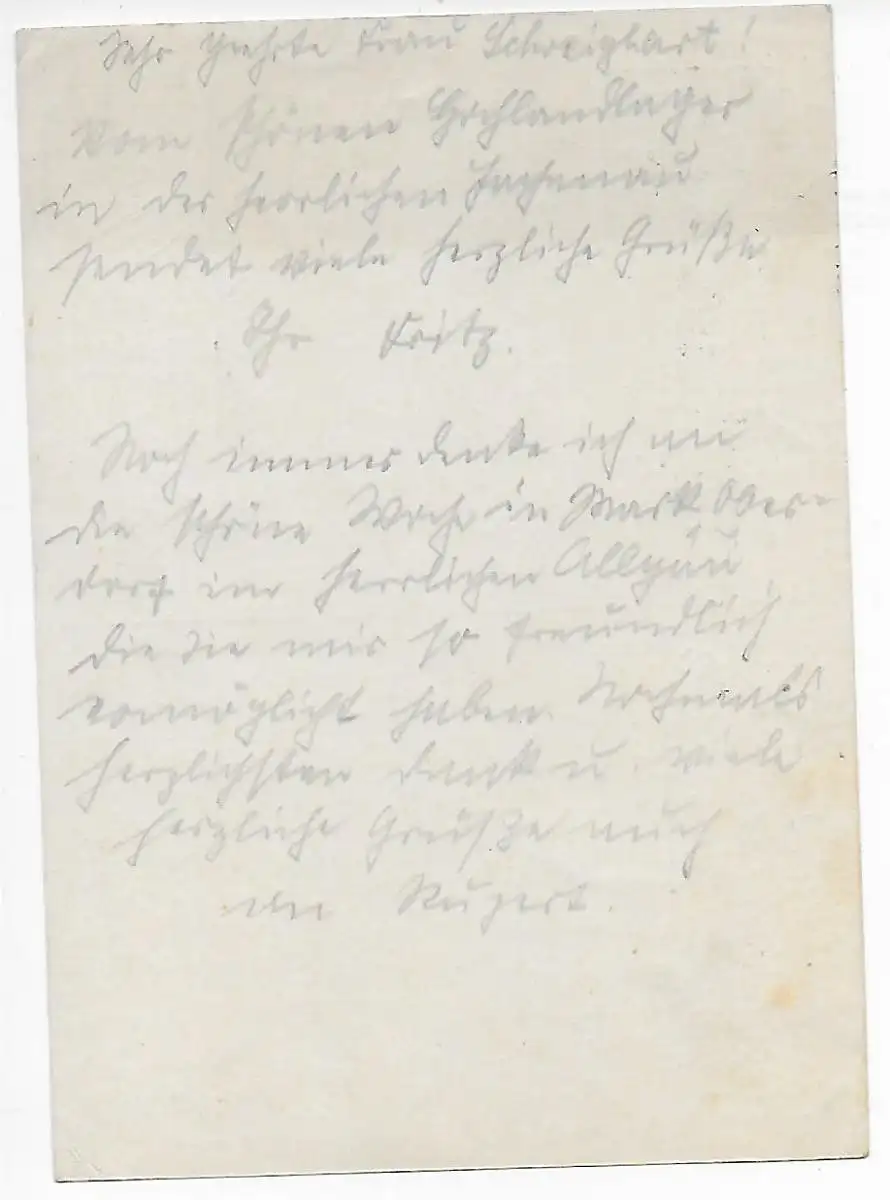 Sehr geehrte Frau Schweighart!
Vom schönen Hochlandlager
in der herrlichen Jachenau
sendet viele herzliche Grüße
Ihr Fritz.
Noch immer denke ich an
die schöne Woche in Markt Ober-
dorf im herrlichen Allgäu
die Sie mir so freundlich
ermöglicht haben. Nochmals
herzlichsten Dank u. viele
herzliche Grüße auch
an Rupert.